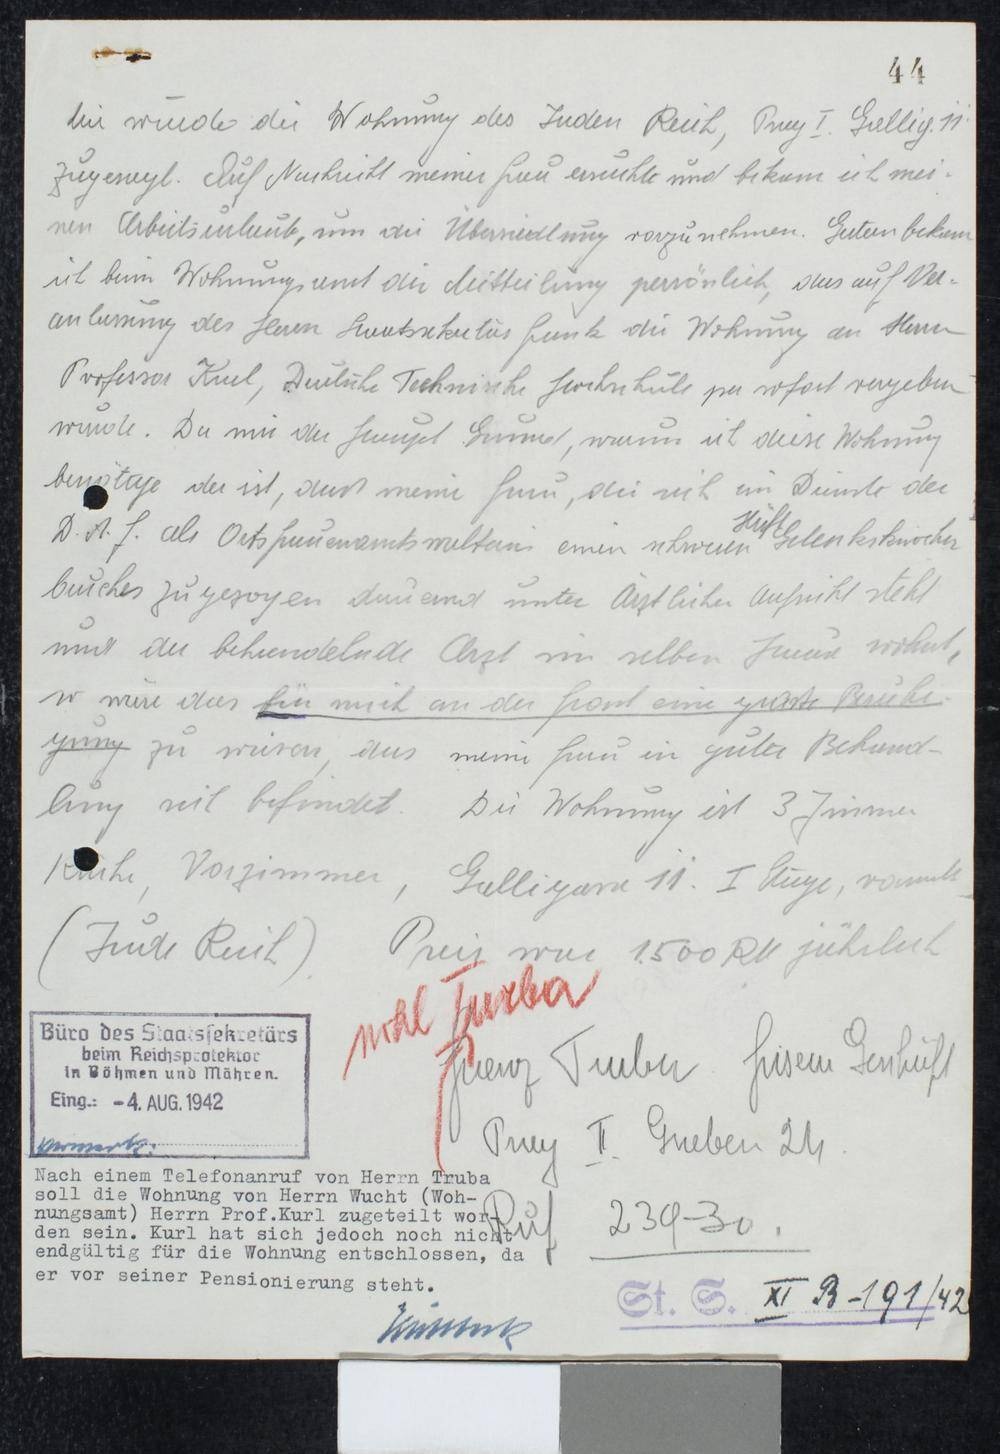 44
Mir wurde die Wohnung des Juden Reich, Prag I. Gallig. 11
zugesagt. Auf Nachricht meiner Frau ersuchte und bekam ich mei-
nen Arbeitsurlaub, um die Übersiedlung vorzunehmen. Gestern bekam
ich beim Wohnungsamt die Mitteilung persönlich, das auf Ver-
anlassung des Herrn Staatssekretärs Frank die Wohnung an Herrn
Professor Kurl, Deutsche Technische Hochschule per sofort vergeben
wurde. Da mir der Haupt Grund, warum ich diese Wohnung
benötige der ist, dass meine Frau, die sich im Dienste der
D.A.F. als Ortsfrauenamtswalterin einen schweren Hüft Gelenksknochen
bruches zugezogen dauernd unter Ärztlicher Aufsicht steht
und der behandelnde Arzt im selben Hause wohnt,
so wäre das für mich an der Front eine grösste Beruhi-
gung zu wissen, das meine Frau in guter Behand-
lung sich befindet. Die Wohnung ist 3 Zimmer
Küche, Vorzimmer, Galligasse 11. I Etage, vormals
(Jude Reich). Preis war 1.500 RM jährlich
wohl Truba
Franz Truba Friseur Geschäft
Prag II. Graben 24.
Ruf 239-30.
Büro des Staatssekretärs
beim Reichsprotektor
in Böhmen und Mähren.
Eing.: -4. AUG. 1942
Nach einem Telefonanruf von Herrn Truba
soll die Wohnung von Herrn Wucht (Woh-
nungsamt) Herrn Prof.Kurl zugeteilt wor-
den sein. Kurl hat sich jedoch noch nicht
endgültig für die Wohnung entschlossen, da
er vor seiner Pensionierung steht.
St. S. XI B-191/42